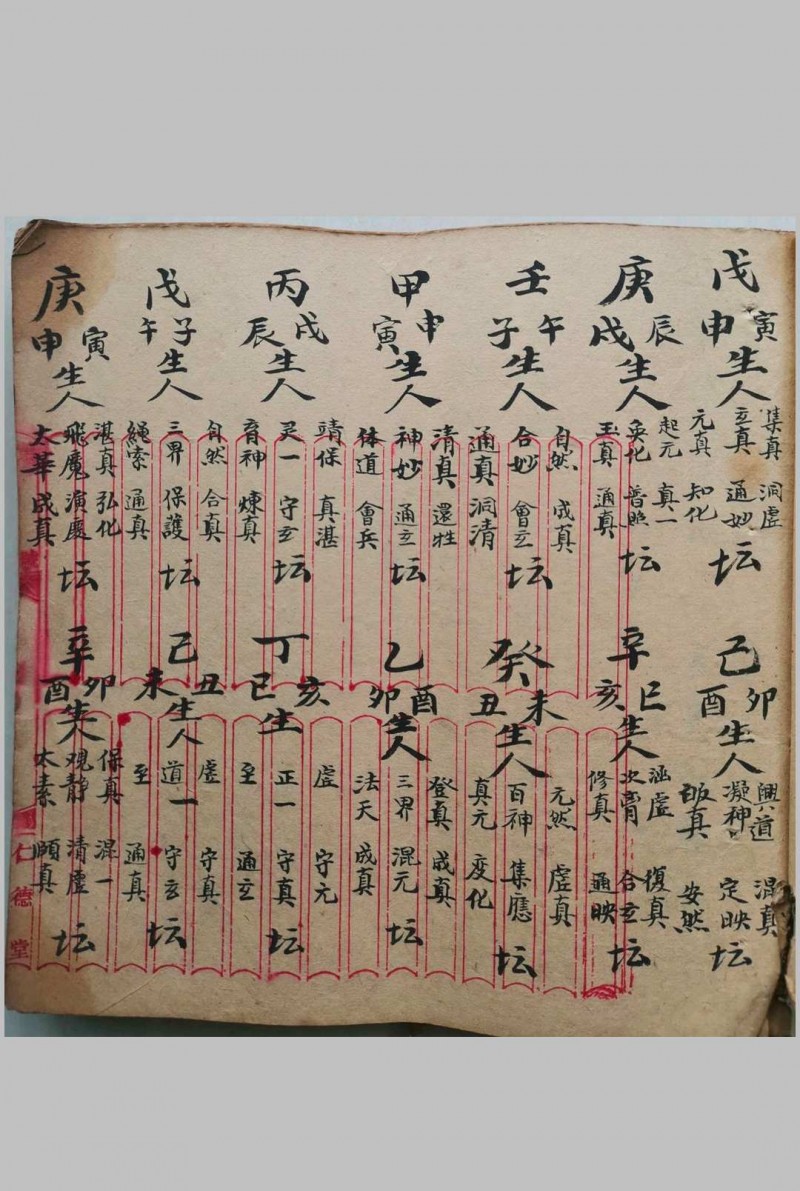 戊
寅申
生人
集真 洞虛
立真 通妙
元真 知化
坛
己
卯酉
生人
興道 混真
凝神 定映
皈真 安然
坛
庚
辰戌
生人
起元 真一
奐化 普照
玉真 通真
坛
辛
巳亥
生人
涵虛 復真
次膏 合玄
修真 通映
坛
壬
午子
生人
自然 成真
合妙 會玄
通真 洞清
坛
癸
未丑
生人
元然 虛真
百神 集應
真元 变化
坛
甲
申寅
生人
清真 還牲
神妙 通玄
体道 會兵
坛
乙
酉卯
生人
登真 成真
三界 混元
法天 成真
坛
丙
戌辰
生人
靖保 真湛
灵一 守玄
育神 煉真
坛
丁
亥巳
生
虛 守元
正一 守真
至 通玄
坛
戊
子午
生人
自然 合真
三界 保護
繩索 通真
坛
己
丑未
生人
虛 守真
道一 守玄
至 通真
坛
庚
寅申
生人
湛真 弘化
飛魔 演慶
太華 成真
坛
辛
卯酉
生人
保真 混一
观静 清虛
太素 頤真
坛
仁德堂